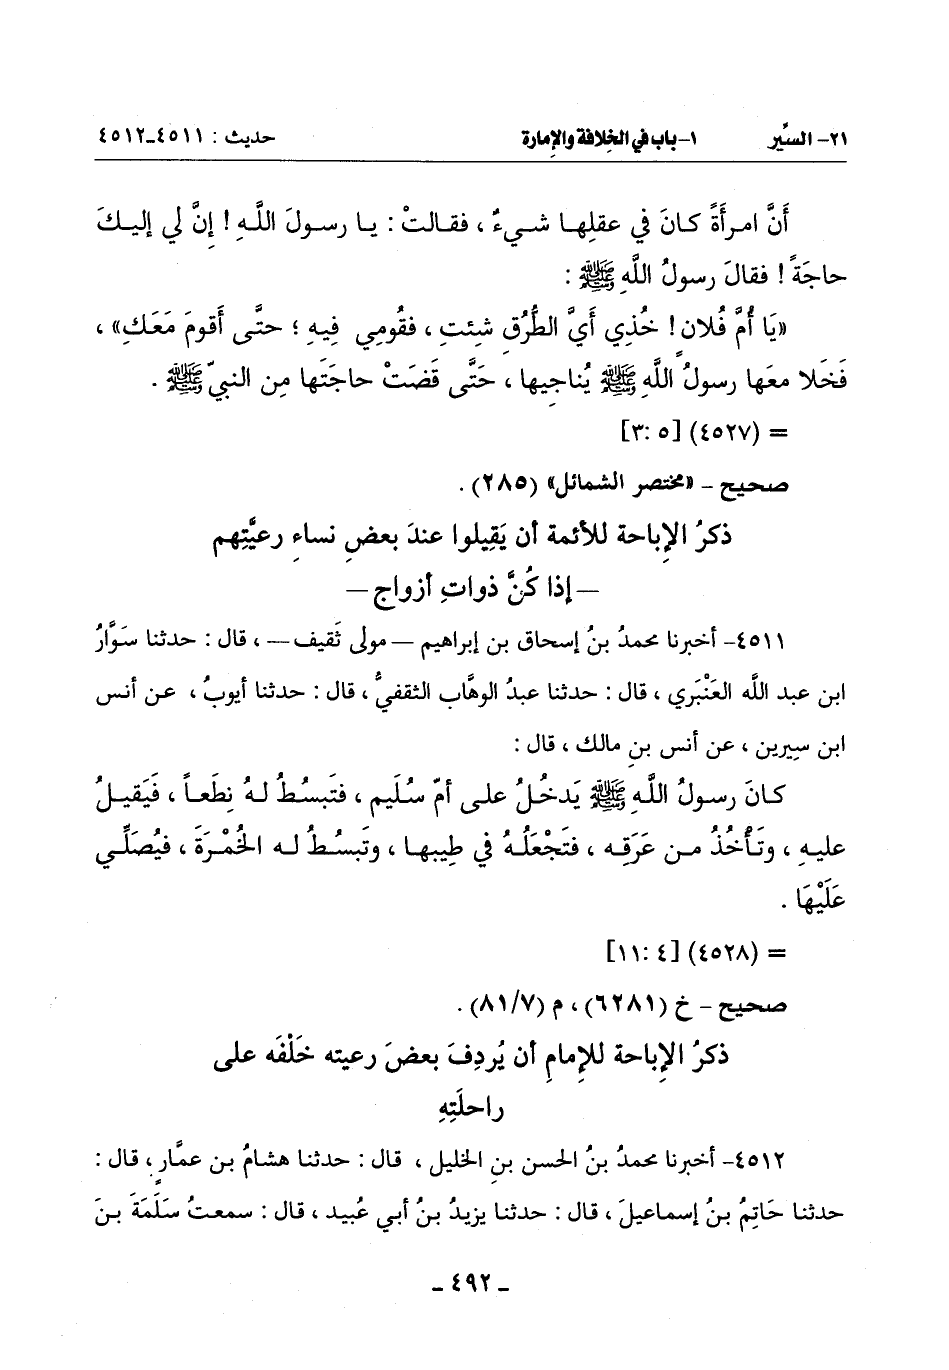 ٢١- السِّير ١- باب في الخلافة والإمارة حديث : ٤٥١١-٤٥١٢
أَنَّ امرأَةً كانَ في عقلِها شيءٌ ، فقالتْ : يا رسولَ اللَّهِ ! إنَّ لي إليكَ
حاجَةً ! فقالَ رسولُ اللَّهِ ﷺ :
«يَا أُمَّ فُلان ! خُذي أَيَّ الطُّرُقِ شئِتِ ، فقُومي فِيهِ ؛ حتَّى أَقومَ مَعَكِ» ،
فَخَلا معَها رسولُ اللَّهِ ﷺ يُناجِيها ، حَتَّى قَضَتْ حاجَتَها مِن النبيّ ﷺ .
= (٤٥٢٧) [٥ :٣]
صحيح - «مختصر الشمائل» (٢٨٥) .
ذكرُ الإِباحة للأئمة أن يَقِيلوا عندَ بعضِ نساءِ رعيَّتِهم
— إذا كُنَّ ذواتِ أزواج —
٤٥١١- أخبرنا محمدُ بنُ إسحاق بن إبراهيم — مولى ثَقيف — ، قال : حدثنا سَوَّارُ
ابن عبد اللَّه العَنْبَري ، قال : حدثنا عبدُ الوهَّاب الثقفيُّ ، قال : حدثنا أيوبُ ، عن أنس
ابن سيرين ، عن أنس بنِ مالك ، قال :
كانَ رسولُ اللَّهِ ﷺ يَدخُلُ على أمّ سُلَيم ، فتَبسُطُ لهُ نِطَعاً ، فَيَقيلُ
عليهِ ، وتَأْخُذُ من عَرَقِه ، فتَجْعَلُهُ في طِيبها ، وتَبسُطُ له الخُمْرَةَ ، فيُصَلِّي
عَلَيْهَا .
= (٤٥٢٨) [٤ :١١]
صحيح - خ (٦٢٨١) ، م (٨١/٧) .
ذكرُ الإِباحة للإِمامِ أن يُردِفَ بعضَ رعيته خَلْفَه على
راحلَتِهِ
٤٥١٢- أخبرنا محمدُ بنُ الحسن بنِ الخليل ، قال : حدثنا هشامُ بن عمَّارٍ ، قال :
حدثنا حَاتِمُ بنُ إسماعيلَ ، قال : حدثنا يزيدُ بنُ أبي عُبيد ، قال : سمعتُ سَلَمَةَ بنَ
- ٤٩٢ -